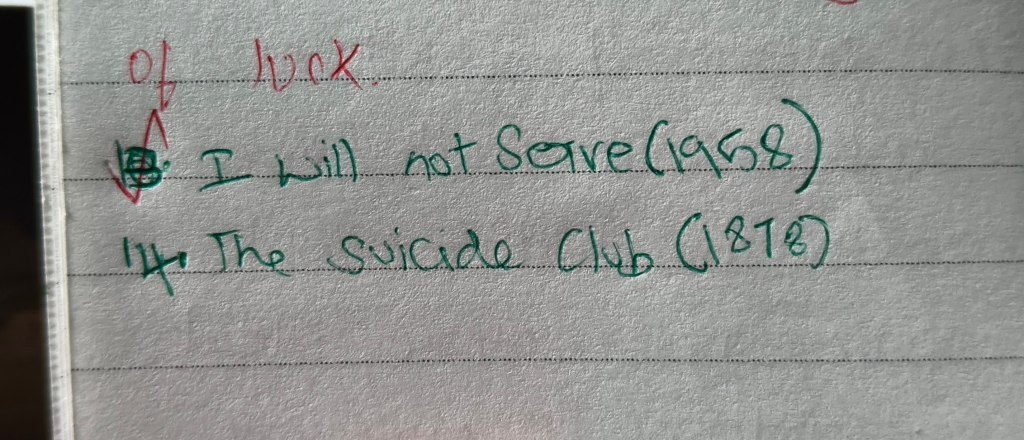 of luck.
I will not Serve (1958)
14. The Suicide Club (1878)